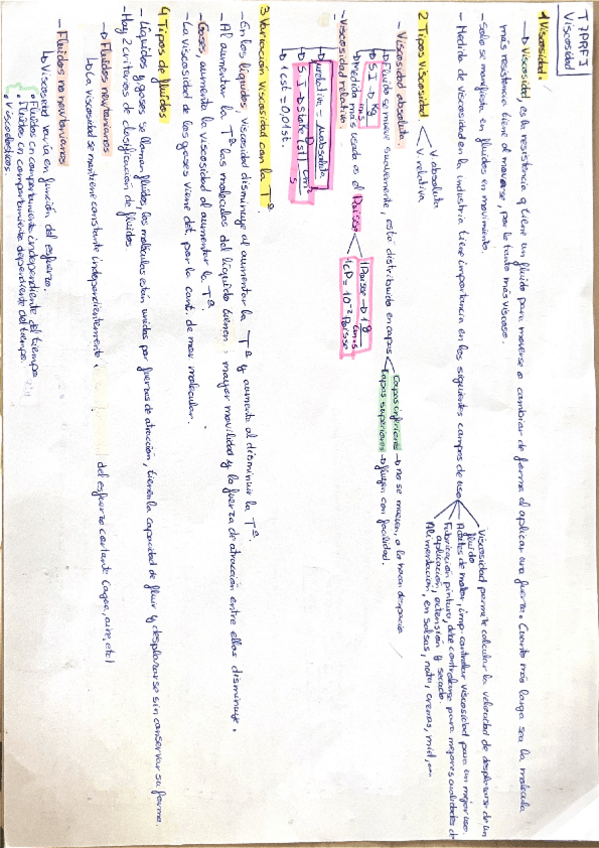 T7 PRFJ
Viscosidad
1 Viscosidad.
→ Viscosidad, es la resistencia q tiene un fluido para moverse o cambiar de forma al aplicar una fuerza. Cuanto más larga sea la molécula
más resistencia tiene al moverse, por lo tanto más viscoso.
- Solo se manifiesta en fluidos en movimiento.
- Medida de viscosidad en la industria tiene importancia en los siguientes campos de uso
Viscosidad permite calcular la velocidad de desplazarse de un
fluido
Aceites de motor, imp controlar viscosidad para un mejor uso.
Fabricación pintura, debe controlarse para mejores cualidades de
aplicación, extensión y secado.
Alimentación, en salsas, nata, cremas, miel,...
2 Tipos viscosidad
V absoluta
V relativa
- Viscosidad absoluta.
Fluido se mueve suavemente, está distribuido en capas
Capas inferiores → no se mueven, o lo hacen despacio
Capas superiores → fluyen con facilidad.
S I → Kg
m·s
medida más usada es el Poisse
1 Poisse → 1 g
cm·s
1 cP = 10⁻² Poisse
- Viscosidad relativa.
μ relativa = μ absoluta
S I → Stoke (st) cm²
s
1 cst = 0,01 st.
3 Variación viscosidad con la Tª.
- En los líquidos, viscosidad disminuye al aumentar la Tª y aumenta al disminuir la Tª.
- Al aumentar la Tª las moléculas del líquido tienen mayor movilidad y la fuerza de atracción entre ellas disminuye.
- Gases, aumenta la viscosidad al aumentar la Tª.
- La viscosidad de los gases viene det. por la cant. de mov molecular.
4 Tipos de fluidos
- Líquidos y gases se llaman fluidos, las moléculas están unidas por fuerzas de atracción, tienen la capacidad de fluir y desplazarse sin conservar su forma.
- Hay 2 criterios de clasificación de fluidos
→ Fluidos newtonianos
La viscosidad se mantiene constante independientemente del esfuerzo cortante (agua, aire, etc)
- Fluidos no newtonianos
Viscosidad varía en función del esfuerzo.
• Fluidos en comportamiento independiente del tiempo
• Fluidos en comportamiento dependiente del tiempo.
• Viscoelásticos.